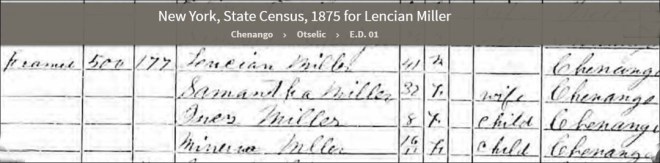 New York, State Census, 1875 for Lencian Miller
Chenango › Otselic › E.D. 01
Frame 500 177 Lencian Miller 41 Chenango
Samantha Miller 32 wife Chenango
Miller 8 child Chenango
Minerva Miller child Chenango